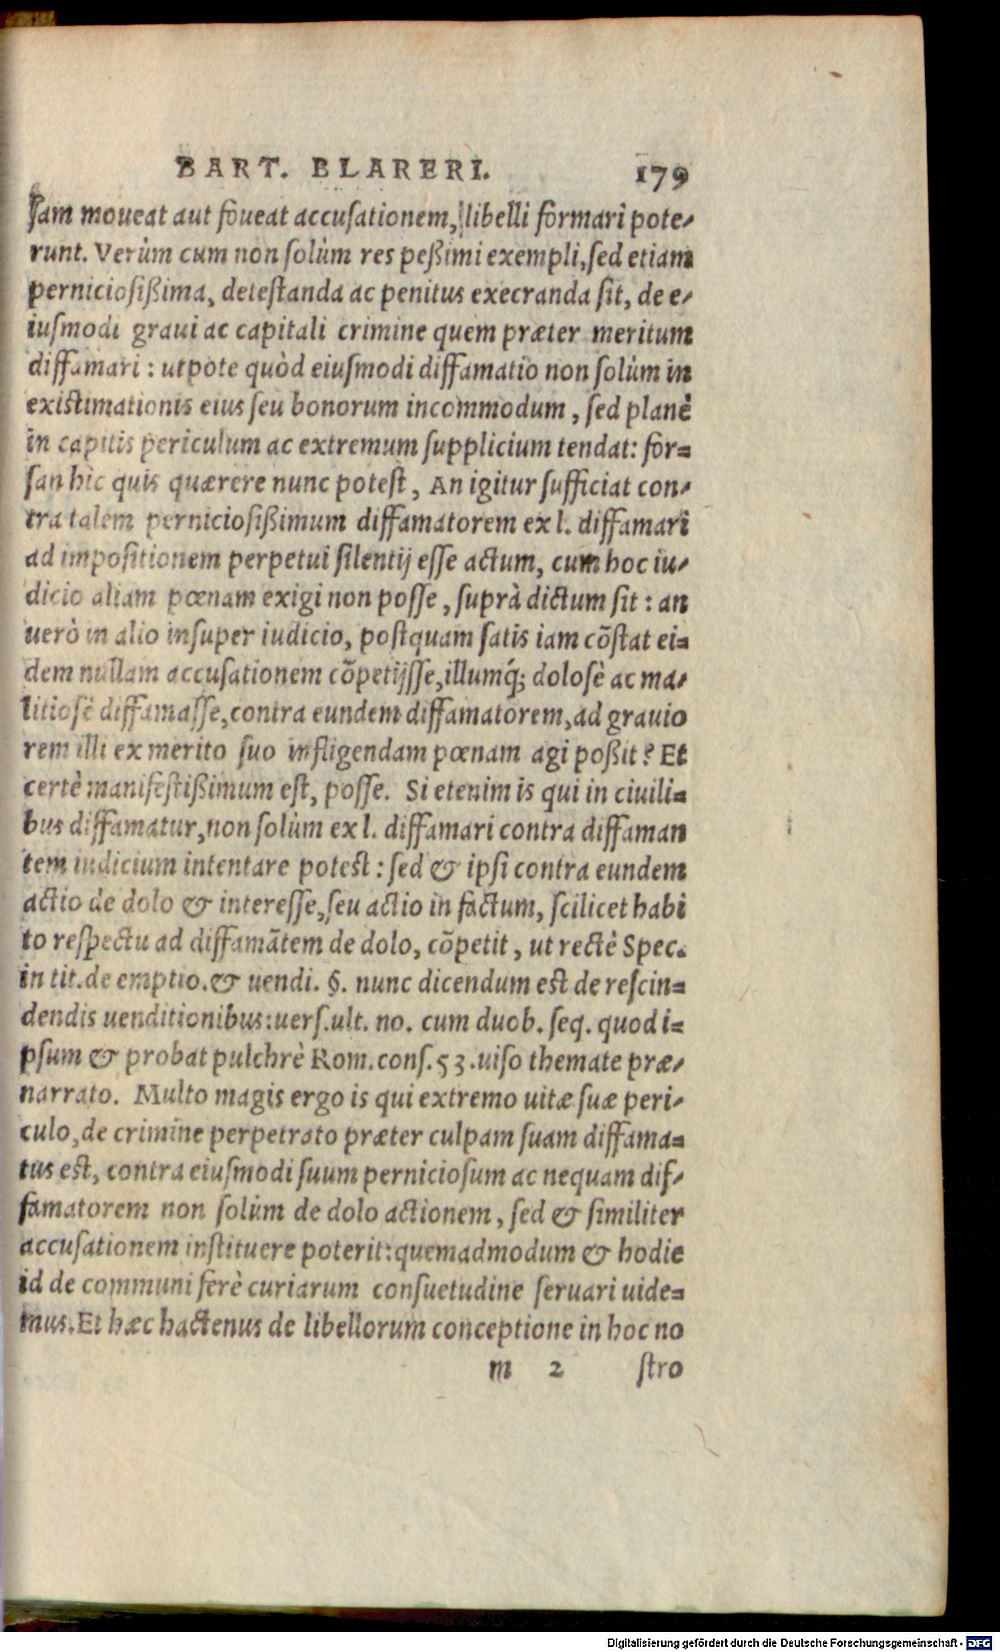 BART. BLARERI. 179
ſam moueat aut foueat accuſationem, libelli formari pote-
runt. Verùm cum non ſolùm res peßimi exempli, ſed etiam
pernicioſißima, deteſtanda ac penitus execranda ſit, de e-
iuſmodi graui ac capitali crimine quem præter meritum
diffamari: utpote quòd eiuſmodi diffamatio non ſolùm in
exiſtimationis eius ſeu bonorum incommodum, ſed planè
in capitis periculum ac extremum ſupplicium tendat: for-
ſan hîc quis quærere nunc poteſt, An igitur ſufficiat con-
tra talem pernicioſißimum diffamatorem ex l. diffamari
ad impoſitionem perpetui ſilentij eſſe actum, cum hoc iu-
dicio aliam pœnam exigi non poſſe, ſuprà dictum ſit: an
uerò in alio inſuper iudicio, poſtquam ſatis iam cõſtat ei-
dem nullam accuſationem cõpetijſſe, illumq́; doloſè ac ma-
litioſè diffamaſſe, contra eundem diffamatorem, ad grauio
rem illi ex merito ſuo infligendam pœnam agi poßit? Et
certè manifeſtißimum eſt, poſſe. Si etenim is qui in ciuili-
bus diffamatur, non ſolùm ex l. diffamari contra diffaman
tem iudicium intentare poteſt: ſed & ipſi contra eundem
actio de dolo & intereſſe, ſeu actio in factum, ſcilicet habi
to reſpectu ad diffamãtem de dolo, cõpetit, ut rectè Spec.
in tit. de emptio. & uendi. §. nunc dicendum eſt de reſcin-
dendis uenditionibus: uerſ. ult. no. cum duob. ſeq. quod i-
pſum & probat pulchrè Rom. conſ. 53. uiſo themate præ-
narrato. Multo magis ergo is qui extremo uitæ ſuæ peri-
culo, de crimine perpetrato præter culpam ſuam diffama-
tus eſt, contra eiuſmodi ſuum pernicioſum ac nequam dif-
famatorem non ſolùm de dolo actionem, ſed & ſimiliter
accuſationem inſtituere poterit: quemadmodum & hodie
id de communi ferè curiarum conſuetudine ſeruari uide-
mus. Et hæc hactenus de libellorum conceptione in hoc no
m 2 ſtro
Digitalisierung gefördert durch die Deutsche Forschungsgemeinschaft - DFG